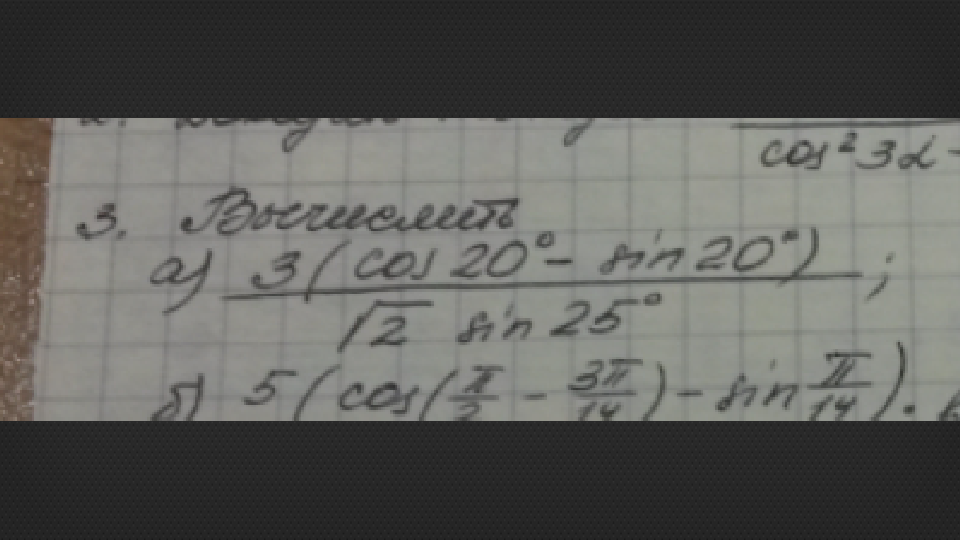 cos² 3α -
3. Вычислить
а) 3(cos 20° - sin 20°) / √2 sin 25° ;
б) 5(cos(π/2 - 3π/14) - sin π/14).